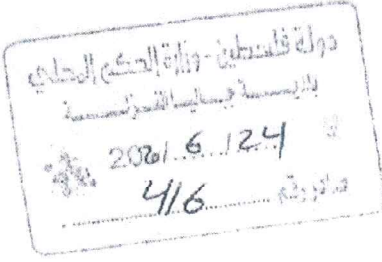 دولة فلسطين - وزارة الحكم المحلي
بلديـــة
2021 / 6 / 24
صادر رقم 416